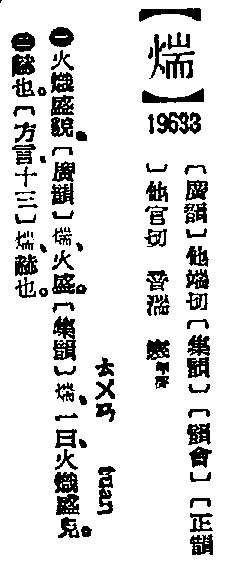 【煓】
19633
〔廣韻〕他端切〔集韻〕〔韻會〕〔正韻
〕他官切 音湍 寒平聲
ㄊㄨㄢ tuan
㊀火熾盛貌。〔廣韻〕煓、火盛。〔集韻〕煓、一曰、火熾盛皃。
㊁赫也。〔方言、十三〕煓、赫也。